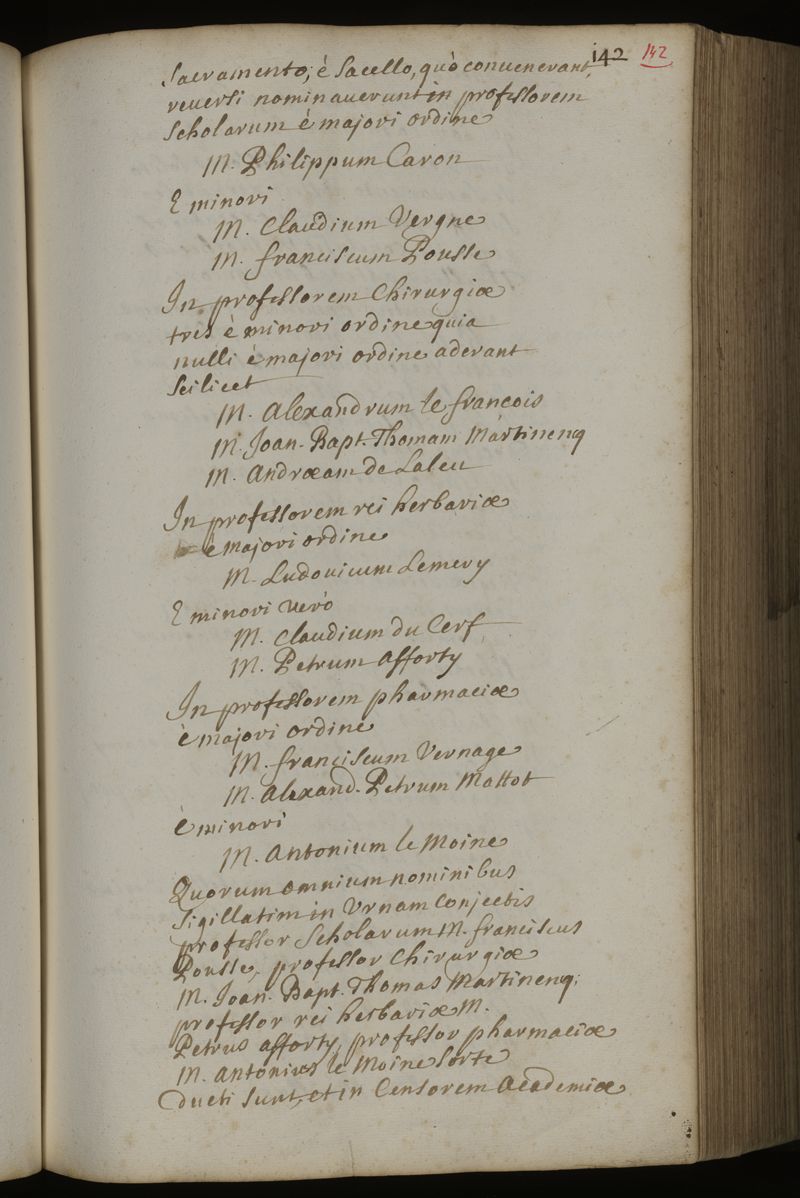 142 142
Sacramento, è Sacello, quò convenerant,
reversi nominaverunt in professorem
Scholarum è majori ordine
M. Philippum Caron
E minori
M. Claudium Vergne
M. franciscum Pousse
In professorem Chirurgiæ
tres è minori ordine quia
nulli è majori ordine aderant
Scilicet
M. Alexandrum le francois
M. Joan. Bapt. Thomam Martinenq
M. Andræam de Laleu
In professorem rei herbariæ
è majori ordine
M. Ludovicum Lemery
E minori verò
M. Claudium du Cerf
M. Petrum afforty
In professorem pharmaciæ
è majori ordine
M. franciscum Vernage
M. Alexand. Petrum Mattot
è minori
M. Antonium le Moine
Quorum omnium nominibus
Sigillatim in Urnam Conjectis
professor Scholarum M. franciscus
Pousse, professor Chirurgiæ
M. Joan. Bapt. Thomas Martinenq;
professor rei herbariæ M.
Petrus afforty, professor pharmaciæ
M. Antonius le Moine Sorte
ducti Sunt, et in Censorem Academiæ